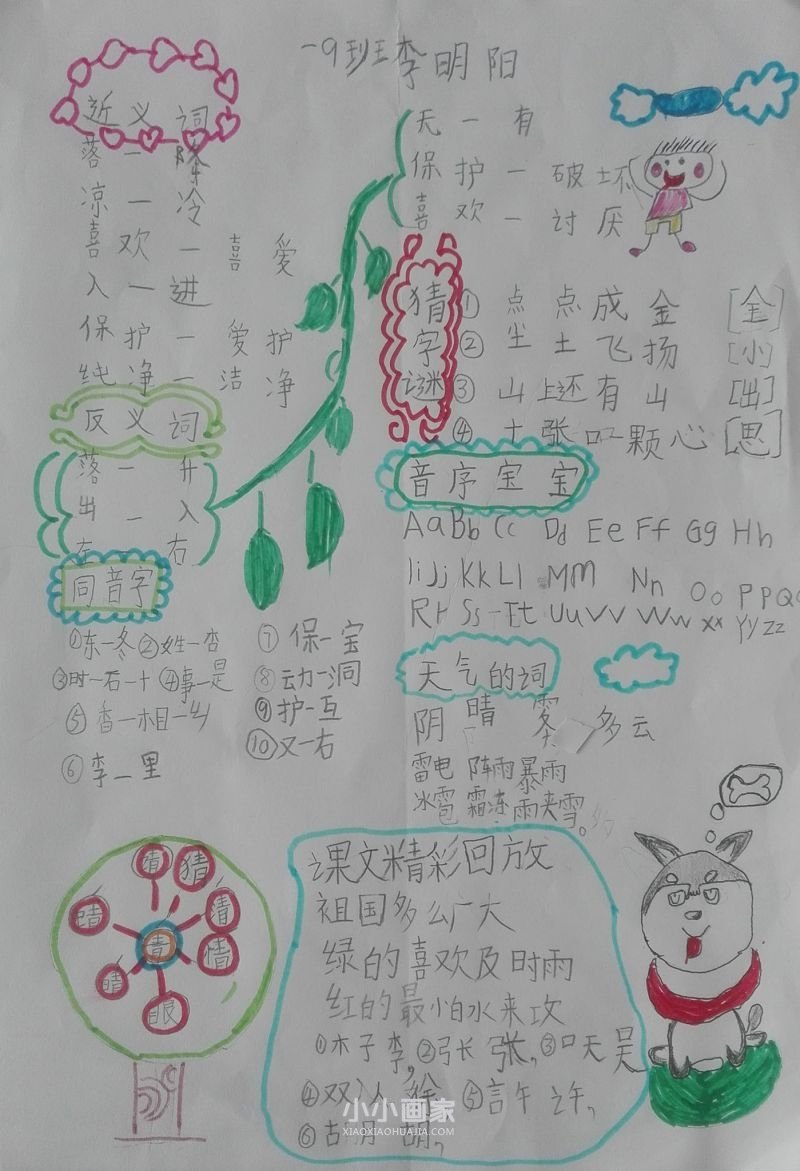 一9班李明阳
近义词
落一降
凉一冷
喜欢一喜爱
入一进
保护一爱护
纯净一洁净
反义词
落一升
出一入
左一右
无一有
保护一破坏
喜欢一讨厌
猜字谜
①点点成金[金]
②尘土飞扬[小]
③山上还有山[出]
④十张口一颗心[思]
同音字
①东一冬②姓一杏
③时一石一十④事一是
⑤香一相一乡
⑥李一里
⑦保一宝
⑧动一洞
⑨护一互
⑩又一右
音序宝宝
AaBb Cc Dd Ee Ff Gg Hh
IiJj Kk Ll MM Nn Oo PpQq
Rr Ss Tt UuVv Ww xx Yy zz
天气的词
阴 晴 雾 多云
雷电 阵雨 暴雨
冰雹 霜冻 雨夹雪。
猜
清
情
眼
晴
睛
青
课文精彩回放
祖国多么广大
绿的喜欢及时雨
红的最怕水来攻
①木子李,②弓长张,③口天吴
④双人徐 ⑤言午许,
⑥古月胡,
小小画家
XIAOXIAOHUAJIA.COM